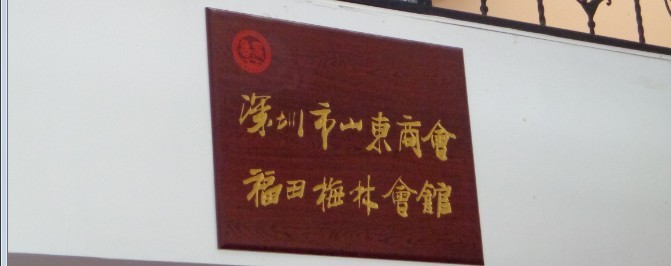 深圳市山東商會
福田梅林會館